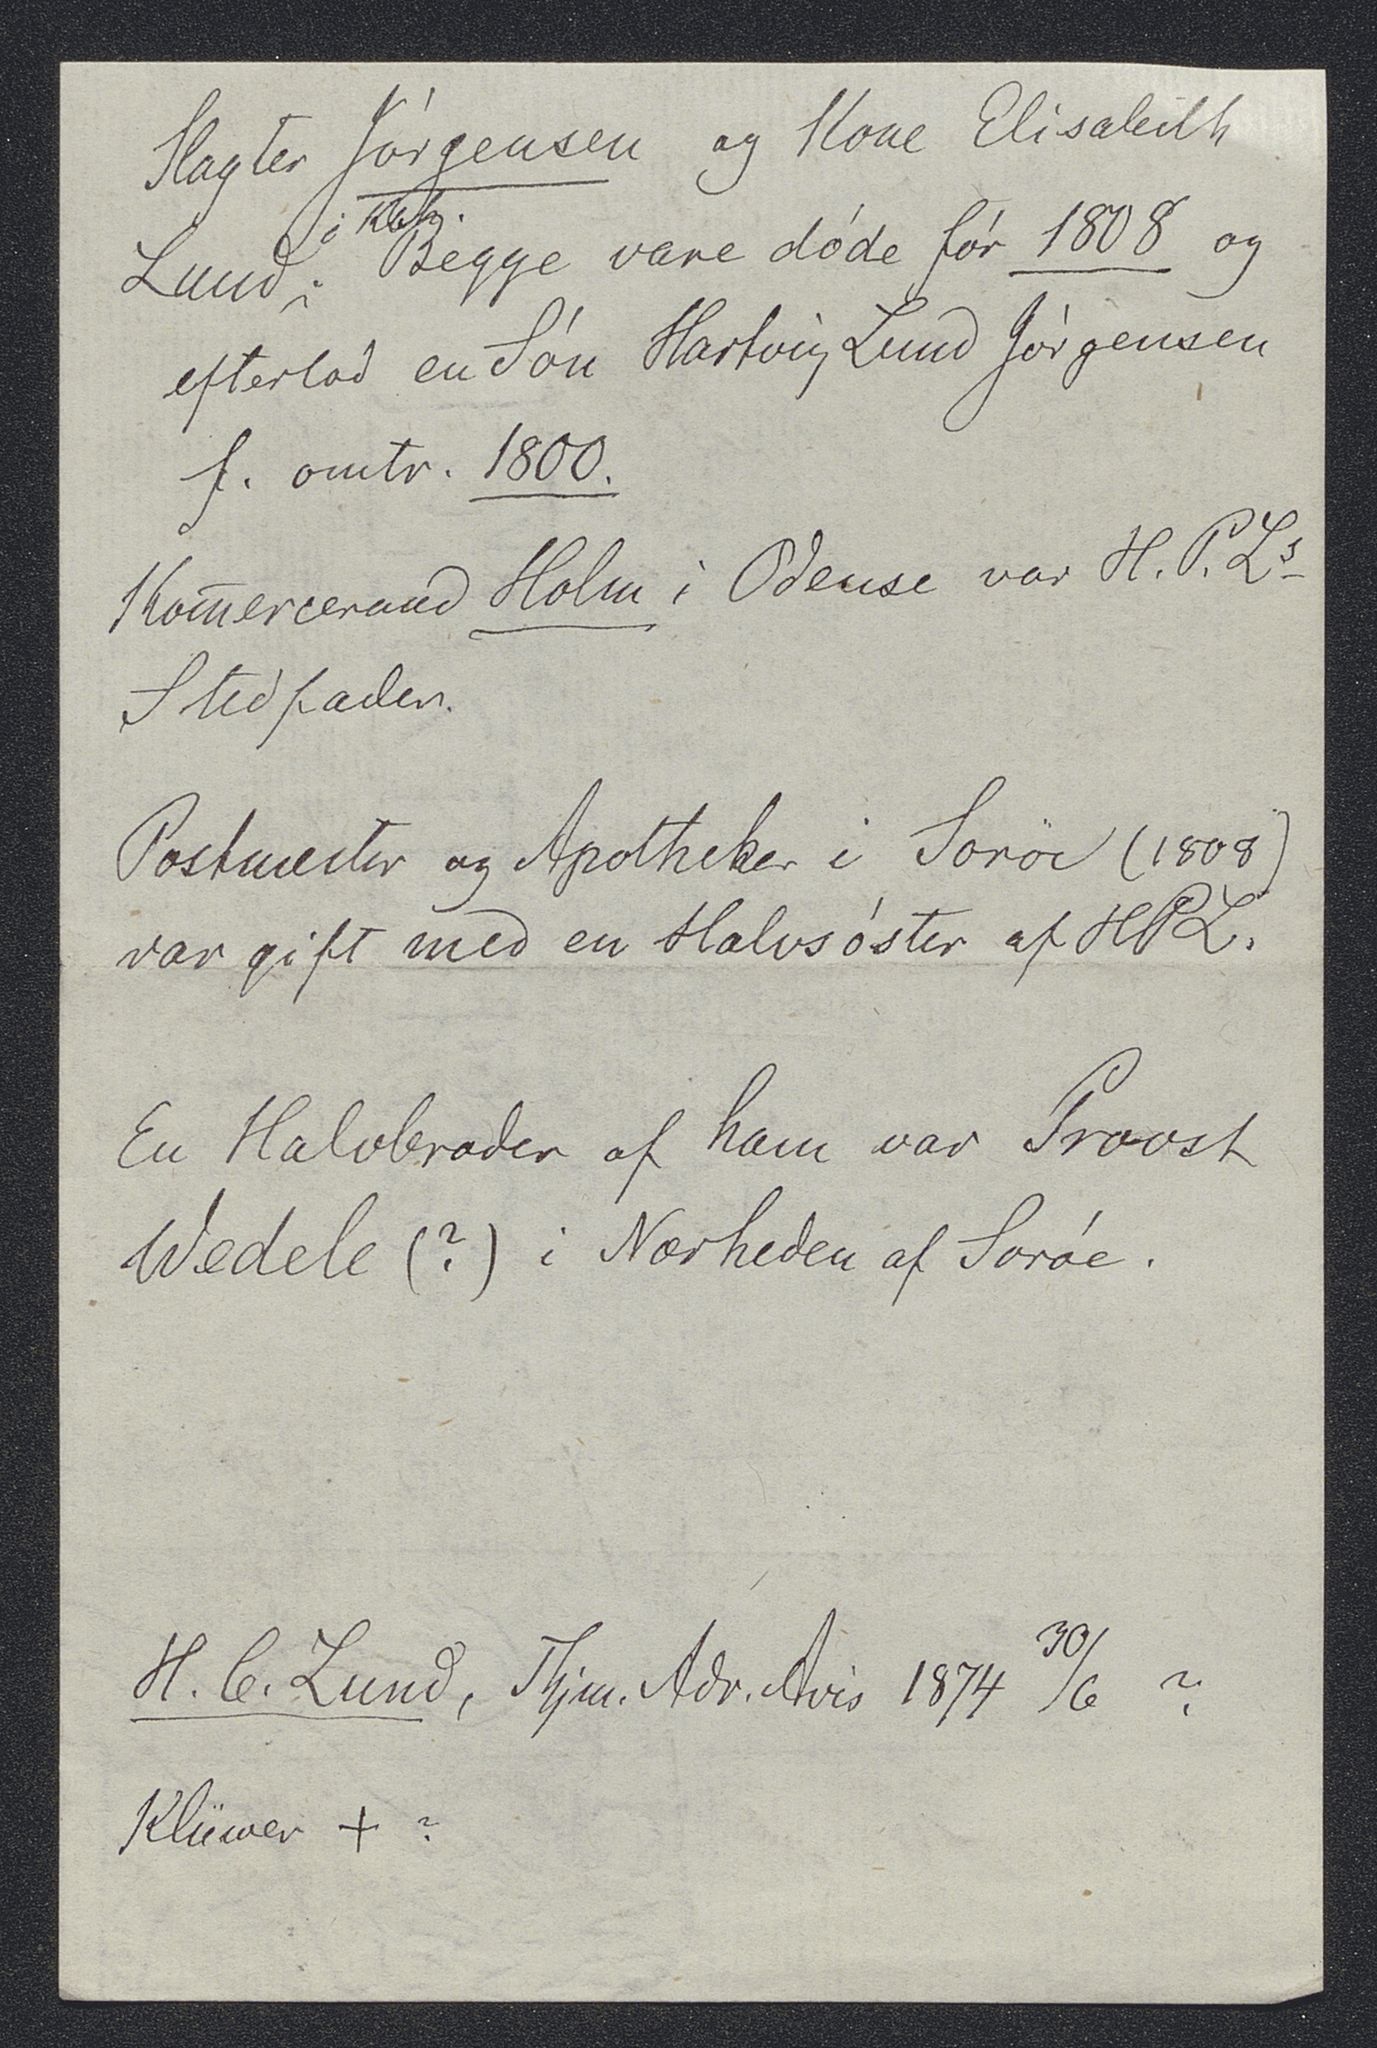 Slagter Jörgensen og Kone Elisabeth
Lund i Kbh. Begge vare döde för 1808 og
efterlod en Sön Hartvig Lund Jörgensen
f. omtr. 1800.
Kom̄erceraad Holm i Odense var H. P. Ls
Stedfader.
Postmester og Apotheker i Soröe (1808)
var gift med en Halvsöster af HPL.
En Halvbroder af ham var Provst
Wedele (?) i Nærheden af Soröe.
H. C. Lund, Thjm. Adr. Avis 1874 30/6 ?
Klüwer + ?